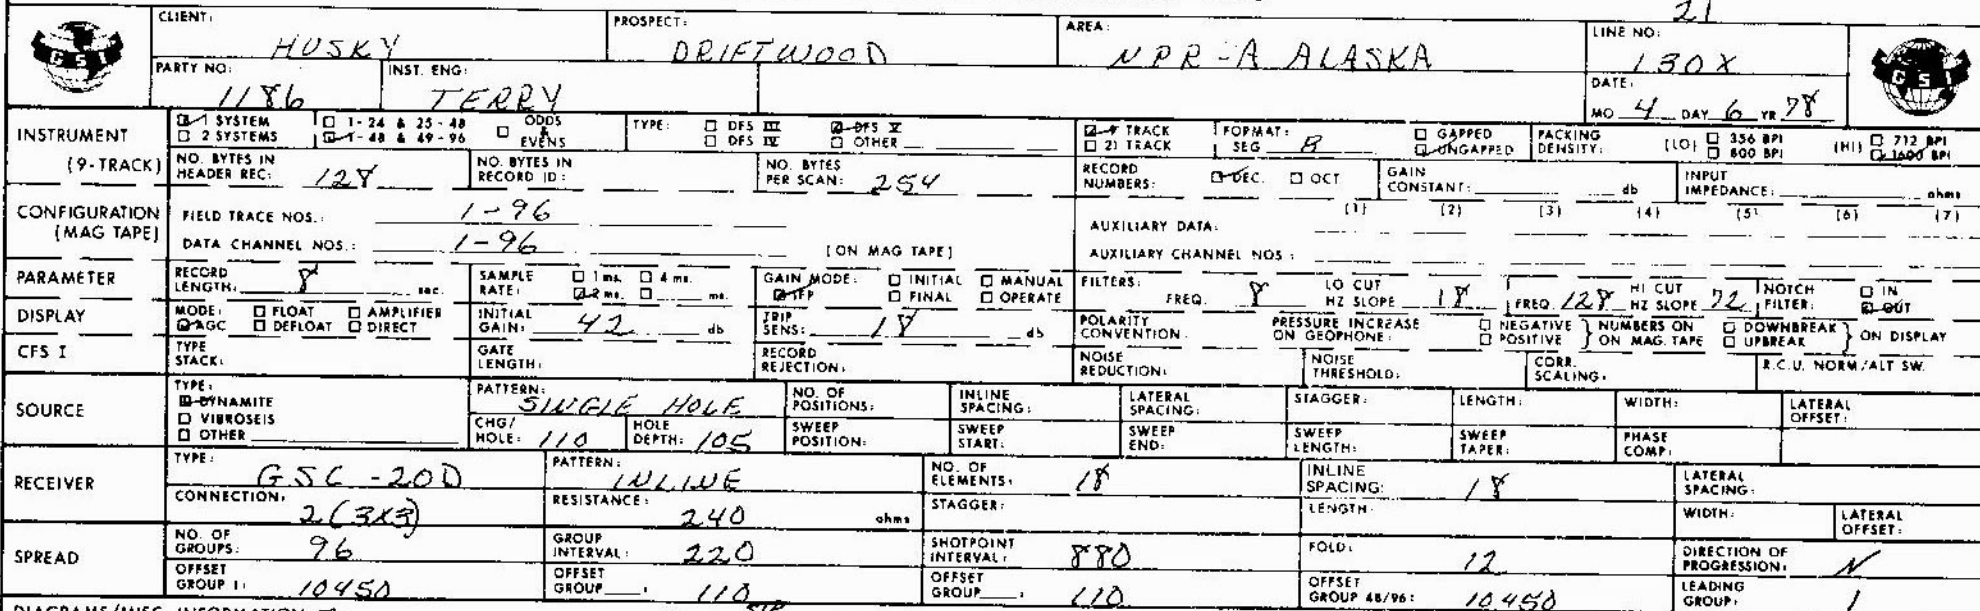 21
CLIENT: HUSKY PROSPECT: DRIFTWOOD AREA: NPR-A ALASKA LINE NO: 130X
GSI GSI
PARTY NO: 1186 INST. ENG: TERRY DATE: MO 4 DAY 6 YR 78
INSTRUMENT (9-TRACK)
1 SYSTEM 1-24 & 25-48 ODDS & EVENS TYPE: DFS III DFS V 9 TRACK FORMAT: GAPPED PACKING DENSITY: (LO) 356 BPI (HI) 712 BPI
2 SYSTEMS 1-48 & 49-96 DFS IV OTHER 21 TRACK SEG B UNGAPPED 800 BPI 1600 BPI
NO. BYTES IN HEADER REC: 128 NO. BYTES IN RECORD ID: NO. BYTES PER SCAN: 254 RECORD NUMBERS: DEC. OCT GAIN CONSTANT: db INPUT IMPEDANCE: ohms
CONFIGURATION (MAG TAPE)
FIELD TRACE NOS.: 1-96 AUXILIARY DATA: (1) (2) (3) (4) (5) (6) (7)
DATA CHANNEL NOS.: 1-96 (ON MAG TAPE) AUXILIARY CHANNEL NOS:
PARAMETER RECORD LENGTH: 8 sec. SAMPLE RATE: 1 ms. 4 ms. 2 ms. ms. GAIN MODE: INITIAL MANUAL IFP FINAL OPERATE FILTERS: FREQ. 8 LO CUT HZ SLOPE 18 FREQ. 128 HI CUT HZ SLOPE 72 NOTCH FILTER: IN OUT
DISPLAY MODE: FLOAT AMPLIFIER AGC DEFLOAT DIRECT INITIAL GAIN: 42 db TRIP SENS: 18 db POLARITY CONVENTION: PRESSURE INCREASE ON GEOPHONE: NEGATIVE POSITIVE } NUMBERS ON MAG. TAPE DOWNBREAK UPBREAK } ON DISPLAY
CFS I TYPE STACK: GATE LENGTH: RECORD REJECTION: NOISE REDUCTION: NOISE THRESHOLD: CORR. SCALING: R.C.U. NORM/ALT SW.
SOURCE TYPE: DYNAMITE VIBROSEIS OTHER PATTERN: SINGLE HOLE NO. OF POSITIONS: INLINE SPACING: LATERAL SPACING: STAGGER: LENGTH: WIDTH: LATERAL OFFSET:
CHG/HOLE: 110 HOLE DEPTH: 105 SWEEP POSITION: SWEEP START: SWEEP END: SWEEP LENGTH: SWEEP TAPER: PHASE COMP:
RECEIVER TYPE: GSC-20D PATTERN: INLINE NO. OF ELEMENTS: 18 INLINE SPACING: 18 LATERAL SPACING:
CONNECTION: 2(3X3) RESISTANCE: 240 ohms STAGGER: LENGTH: WIDTH: LATERAL OFFSET:
SPREAD NO. OF GROUPS: 96 GROUP INTERVAL: 220 SHOTPOINT INTERVAL: 880 FOLD: 12 DIRECTION OF PROGRESSION: N
OFFSET GROUP 1: 10450 OFFSET GROUP : 110 OFFSET GROUP : 110 OFFSET GROUP 48/96: 10450 LEADING GROUP: 1
DIAGRAMS/MISC. INFORMATION